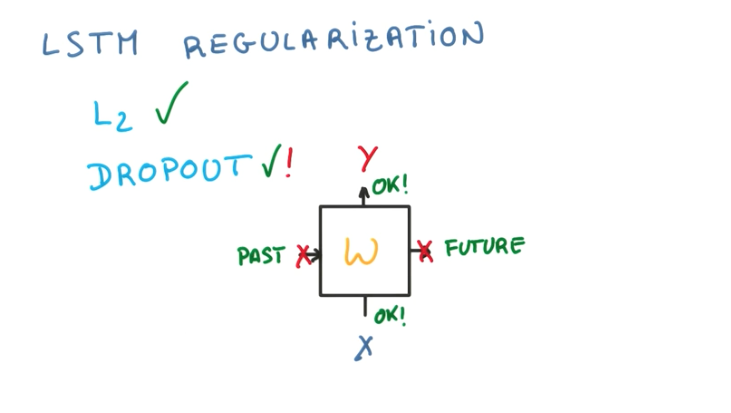 LSTM REGULARIZATION
L2 ✓
DROPOUT ✓!
Y
OK!
PAST X W X FUTURE
OK!
X